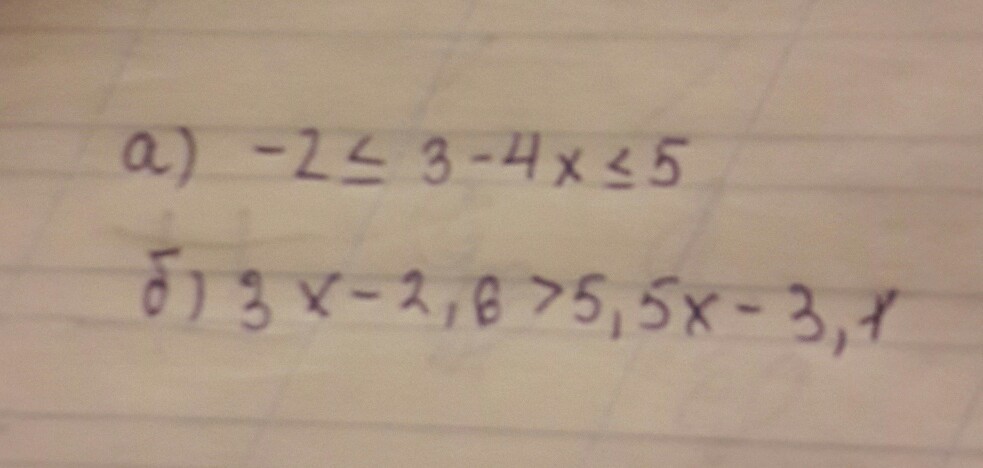 а) -2 ≤ 3-4x ≤ 5
б) 3x-2,6 > 5,5x-3,1